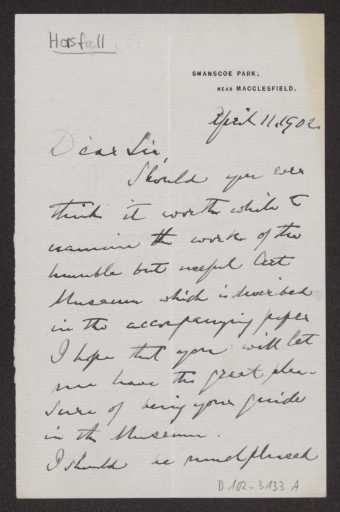 Horsfall
SWANSCOE PARK,
NEAR MACCLESFIELD.
April 11. 1902.
Dear Sir,
Should you ever
think it worth while to
examine the work of the
humble but useful Art
Museum which is described
in the accompanying paper
I hope that you will let
me have the great plea-
sure of being your guide
in the Museum.
I should be much pleased
D 102-3133 A